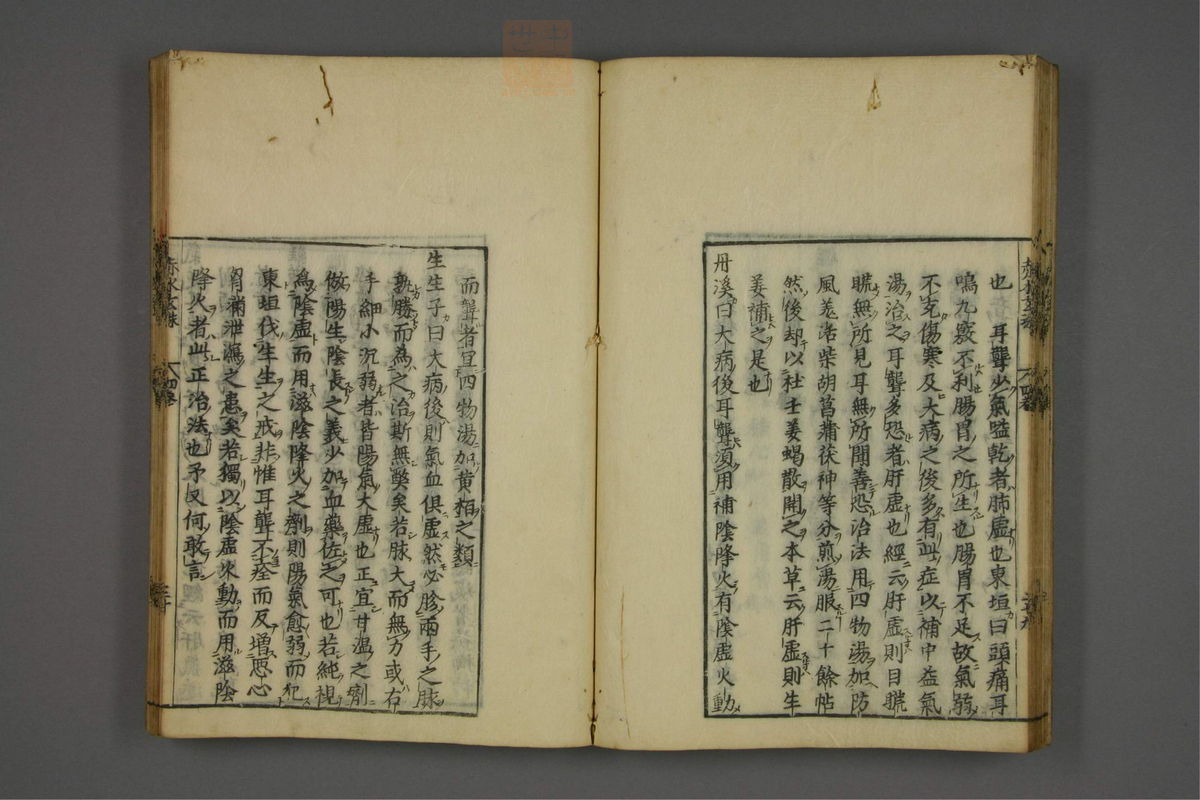 也　耳聾少氣嗌乾者肺虛也東垣曰頭痛耳
鳴九竅不利腸胃之所生也腸胃不足故氣弱
不克傷寒及大病之後多有此症以補中益氣
湯治之耳聾多恐者肝虛也經云肝虛則目䀮
䀮無所見耳無所聞善恐治法用四物湯加防
風羌活柴胡菖蒲茯神等分煎湯服二十餘帖
然後却以杜壬姜蝎散開之本草云肝虛則生
姜補之是也
丹溪曰大病後耳聾須用補陰降火有陰虛火動
而聾者宜四物湯加黄栢之類
生生子曰大病後則氣血俱虛然必胗兩手之脉
孰勝而為之治斯無獘矣若脉大而無力或右
手細小沉弱者皆陽氣大虛也正宜甘溫之劑
倣陽生陰長之義少加血藥佐之可也若純視
為陰虛而用滋陰降火之劑則陽氣愈弱而犯
東垣伐生生之戒非惟耳聾不痊而反增惡心
胷滿泄瀉之患矣若獨以陰虛火動而用滋陰
降火者此正治法也予又何敢言
赤水玄珠